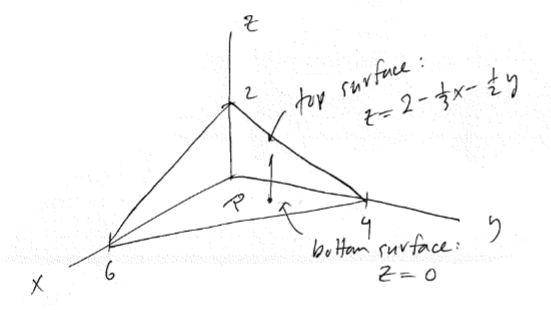 z
2
top surface:
z = 2 - 1/3 x - 1/2 y
R
4
y
bottom surface:
z = 0
6
x